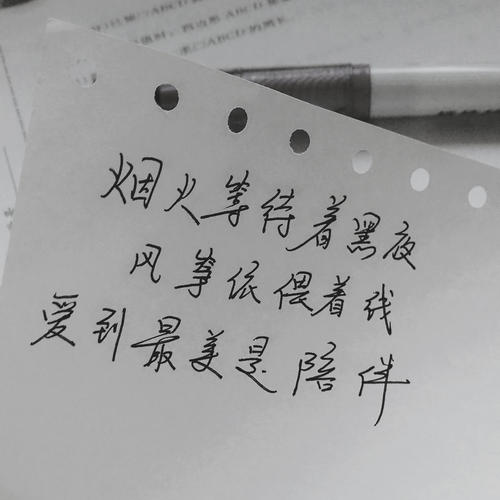 烟火等待着黑夜
风筝依偎着线
爱到最美是陪伴